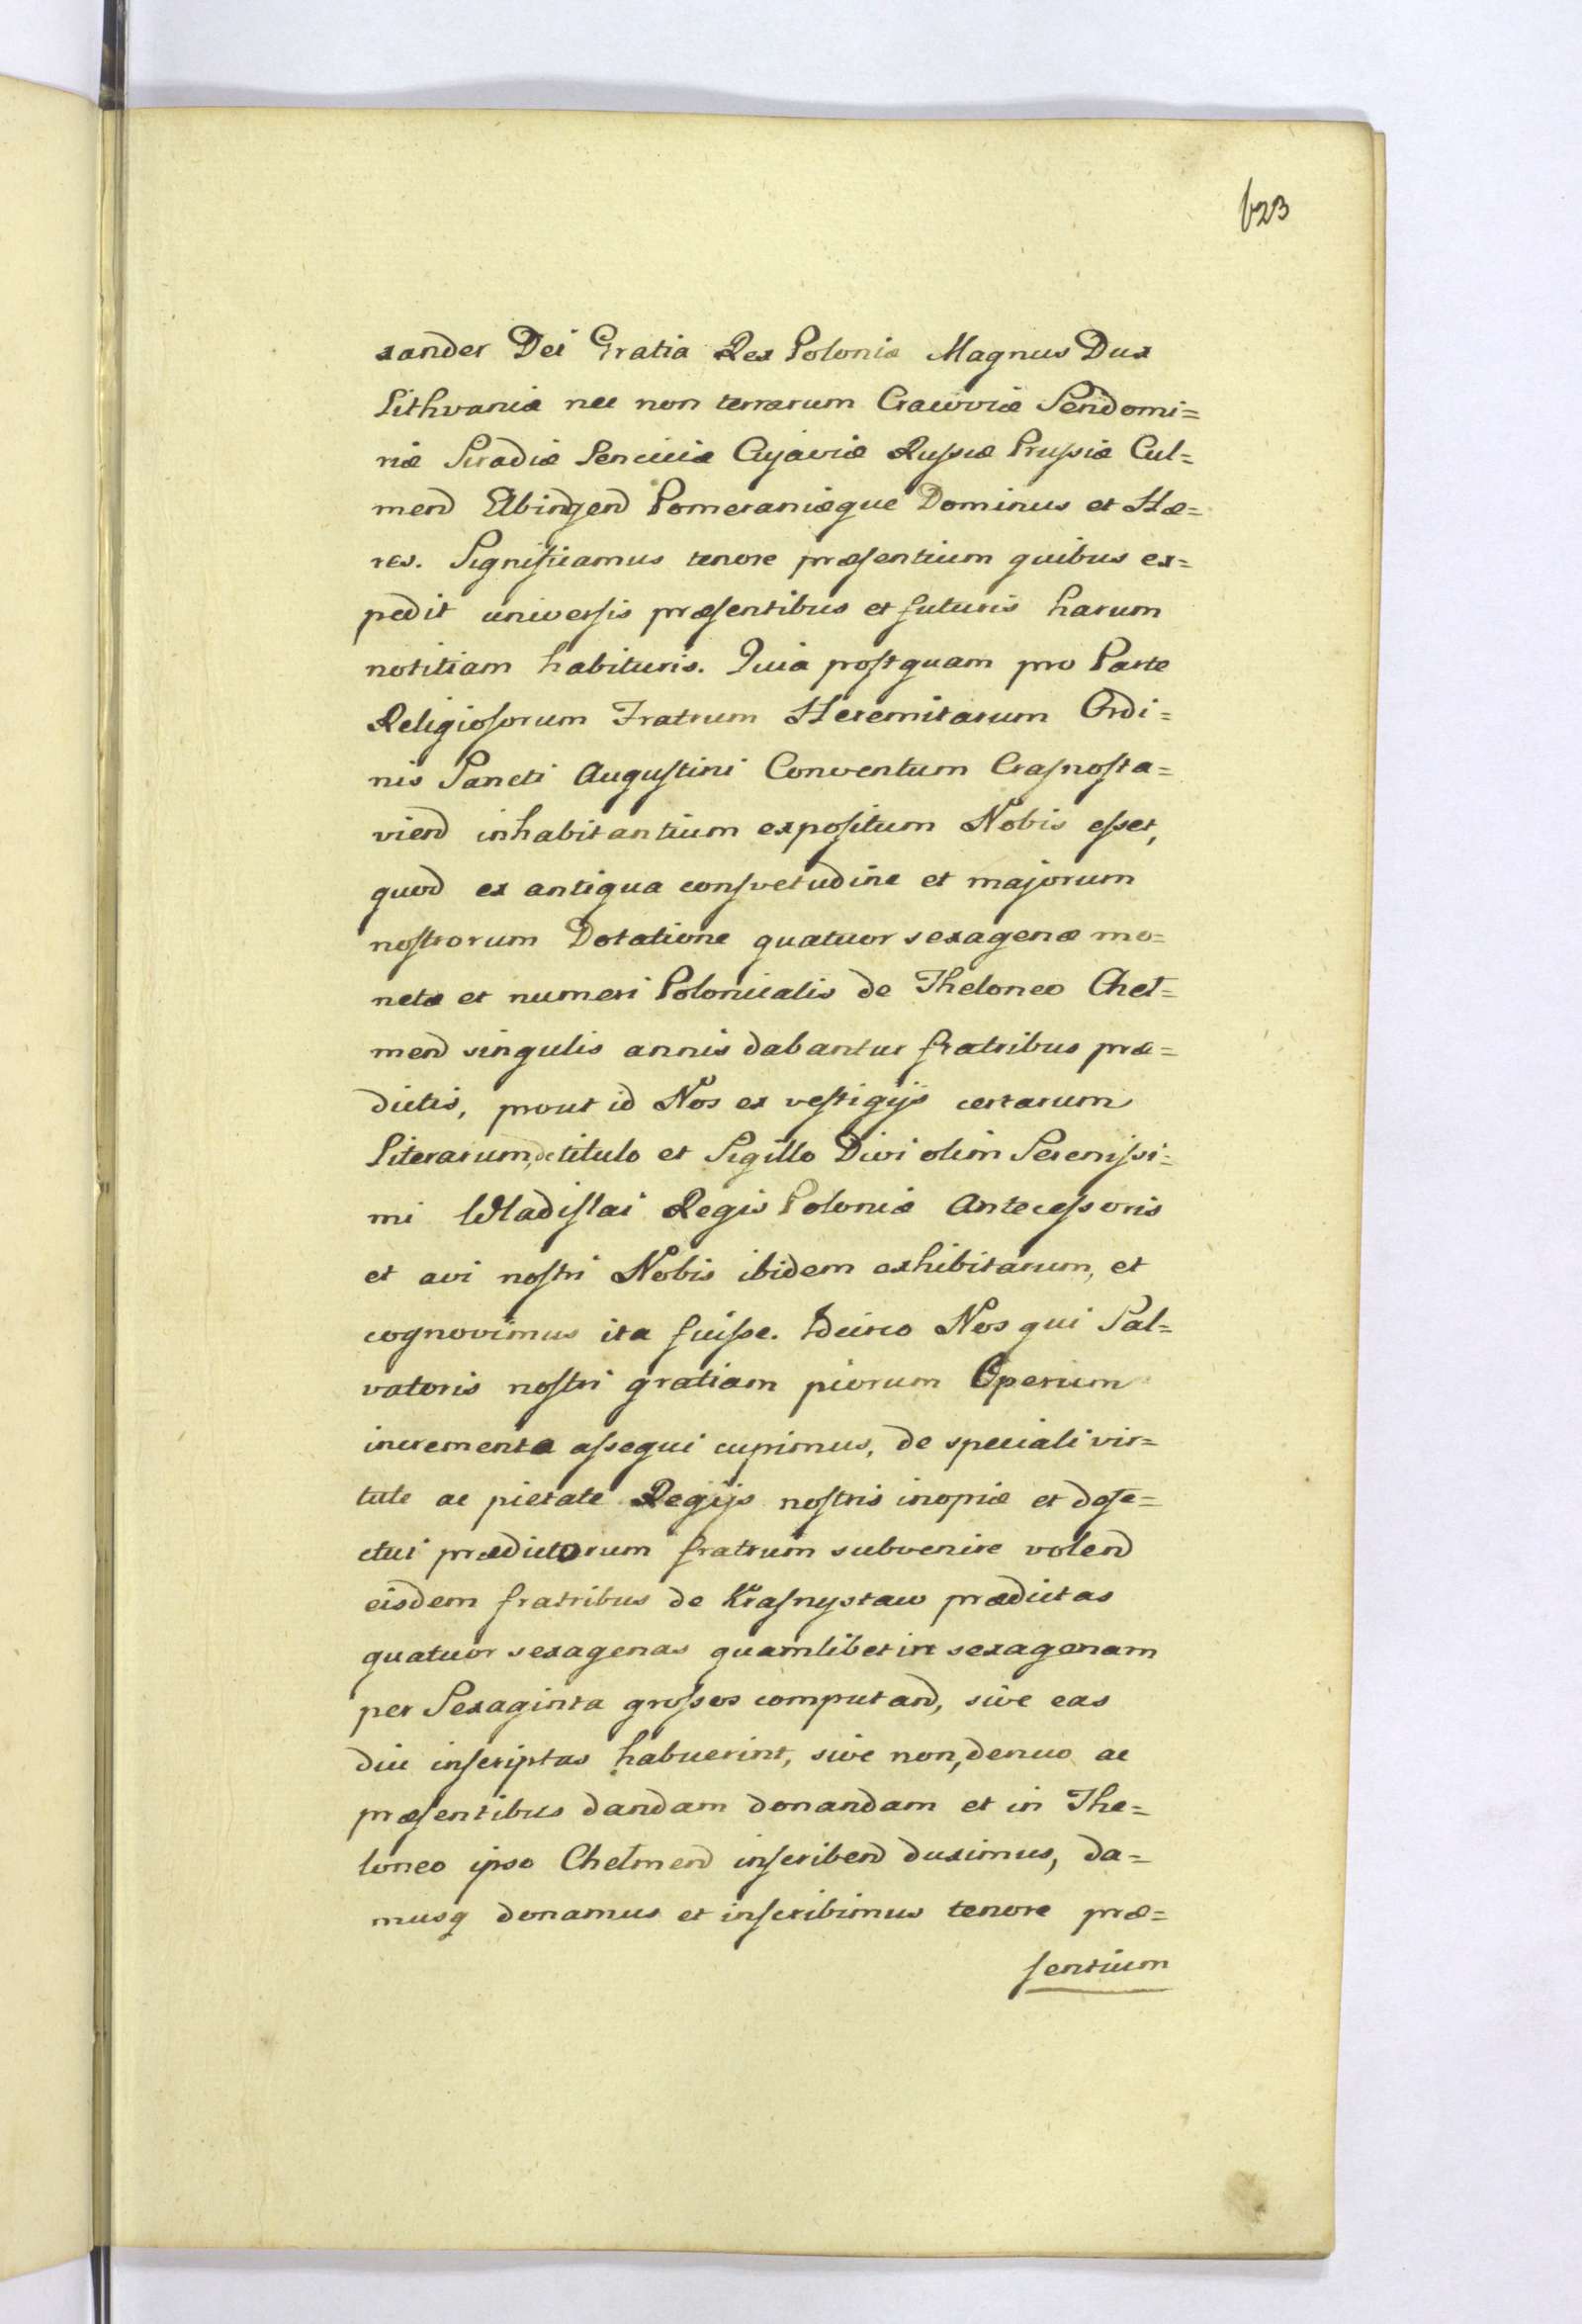 623
xander Dei Gratia Rex Poloniæ Magnus Dux
Lithvaniæ nec non terrarum Cracoviæ Sendomi=
riæ Siradiæ Lenciciæ Cujaviæ Russiæ Prussiæ Cul=
mend Elbingend Pomeraniæque Dominus et Hæ=
res. Significamus tenore præsentium quibus ex=
pedit universis præsentibus et futuris harum
notitiam habituris. Quia postquam pro Parte
Religiosorum Fratrum Heremitarum Ordi=
nis Sancti Augustini Conventum Crasnosta=
viend inhabitantium expositum Nobis esset,
quod ex antiqua consvetudine et majorum
nostrorum Dotatione quatuor sexagenæ mo=
netæ et numeri Polonicalis de Theloneo Cheł=
mend singulis annis dabantur fratribus præ=
dictis, prout id Nos ex vestigijs certarum
Literarum, de titulo et Sigillo Divi olim Serenissi=
mi Wladislai Regis Poloniæ Antecessoris
et avi nostri Nobis ibidem exhibitarum, et
cognovimus ita fuisse. Idcirco Nos qui Sal=
vatoris nostri gratiam piorum Operum
incrementa assequi cupimus, de speciali vir=
tute ac pietate Regijs nostris inopiæ et defe=
ctui prædictorum fratrum subvenire volend
eisdem fratribus de Krasnystaw prædictas
quatuor sexagenas quamlibet in sexagenam
per Sexaginta grossos computand, sive eas
diu inscriptas habuerint, sive non, denuo ac
præsentibus dandam donandam et in The=
loneo ipso Chełmend inscribend duximus, da=
musq donamus et inscribimus tenore præ=
sentium